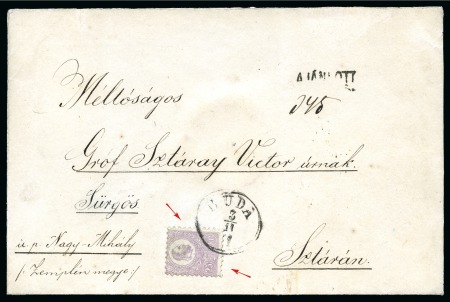 AJÁNLOTT
Méltóságos
345
Gróf Sztáray Victor úrnak.
Sürgös
BUDA
3
11
u. p. Nagy-Mihály
Sztárán.
p. Zemplén megye:/